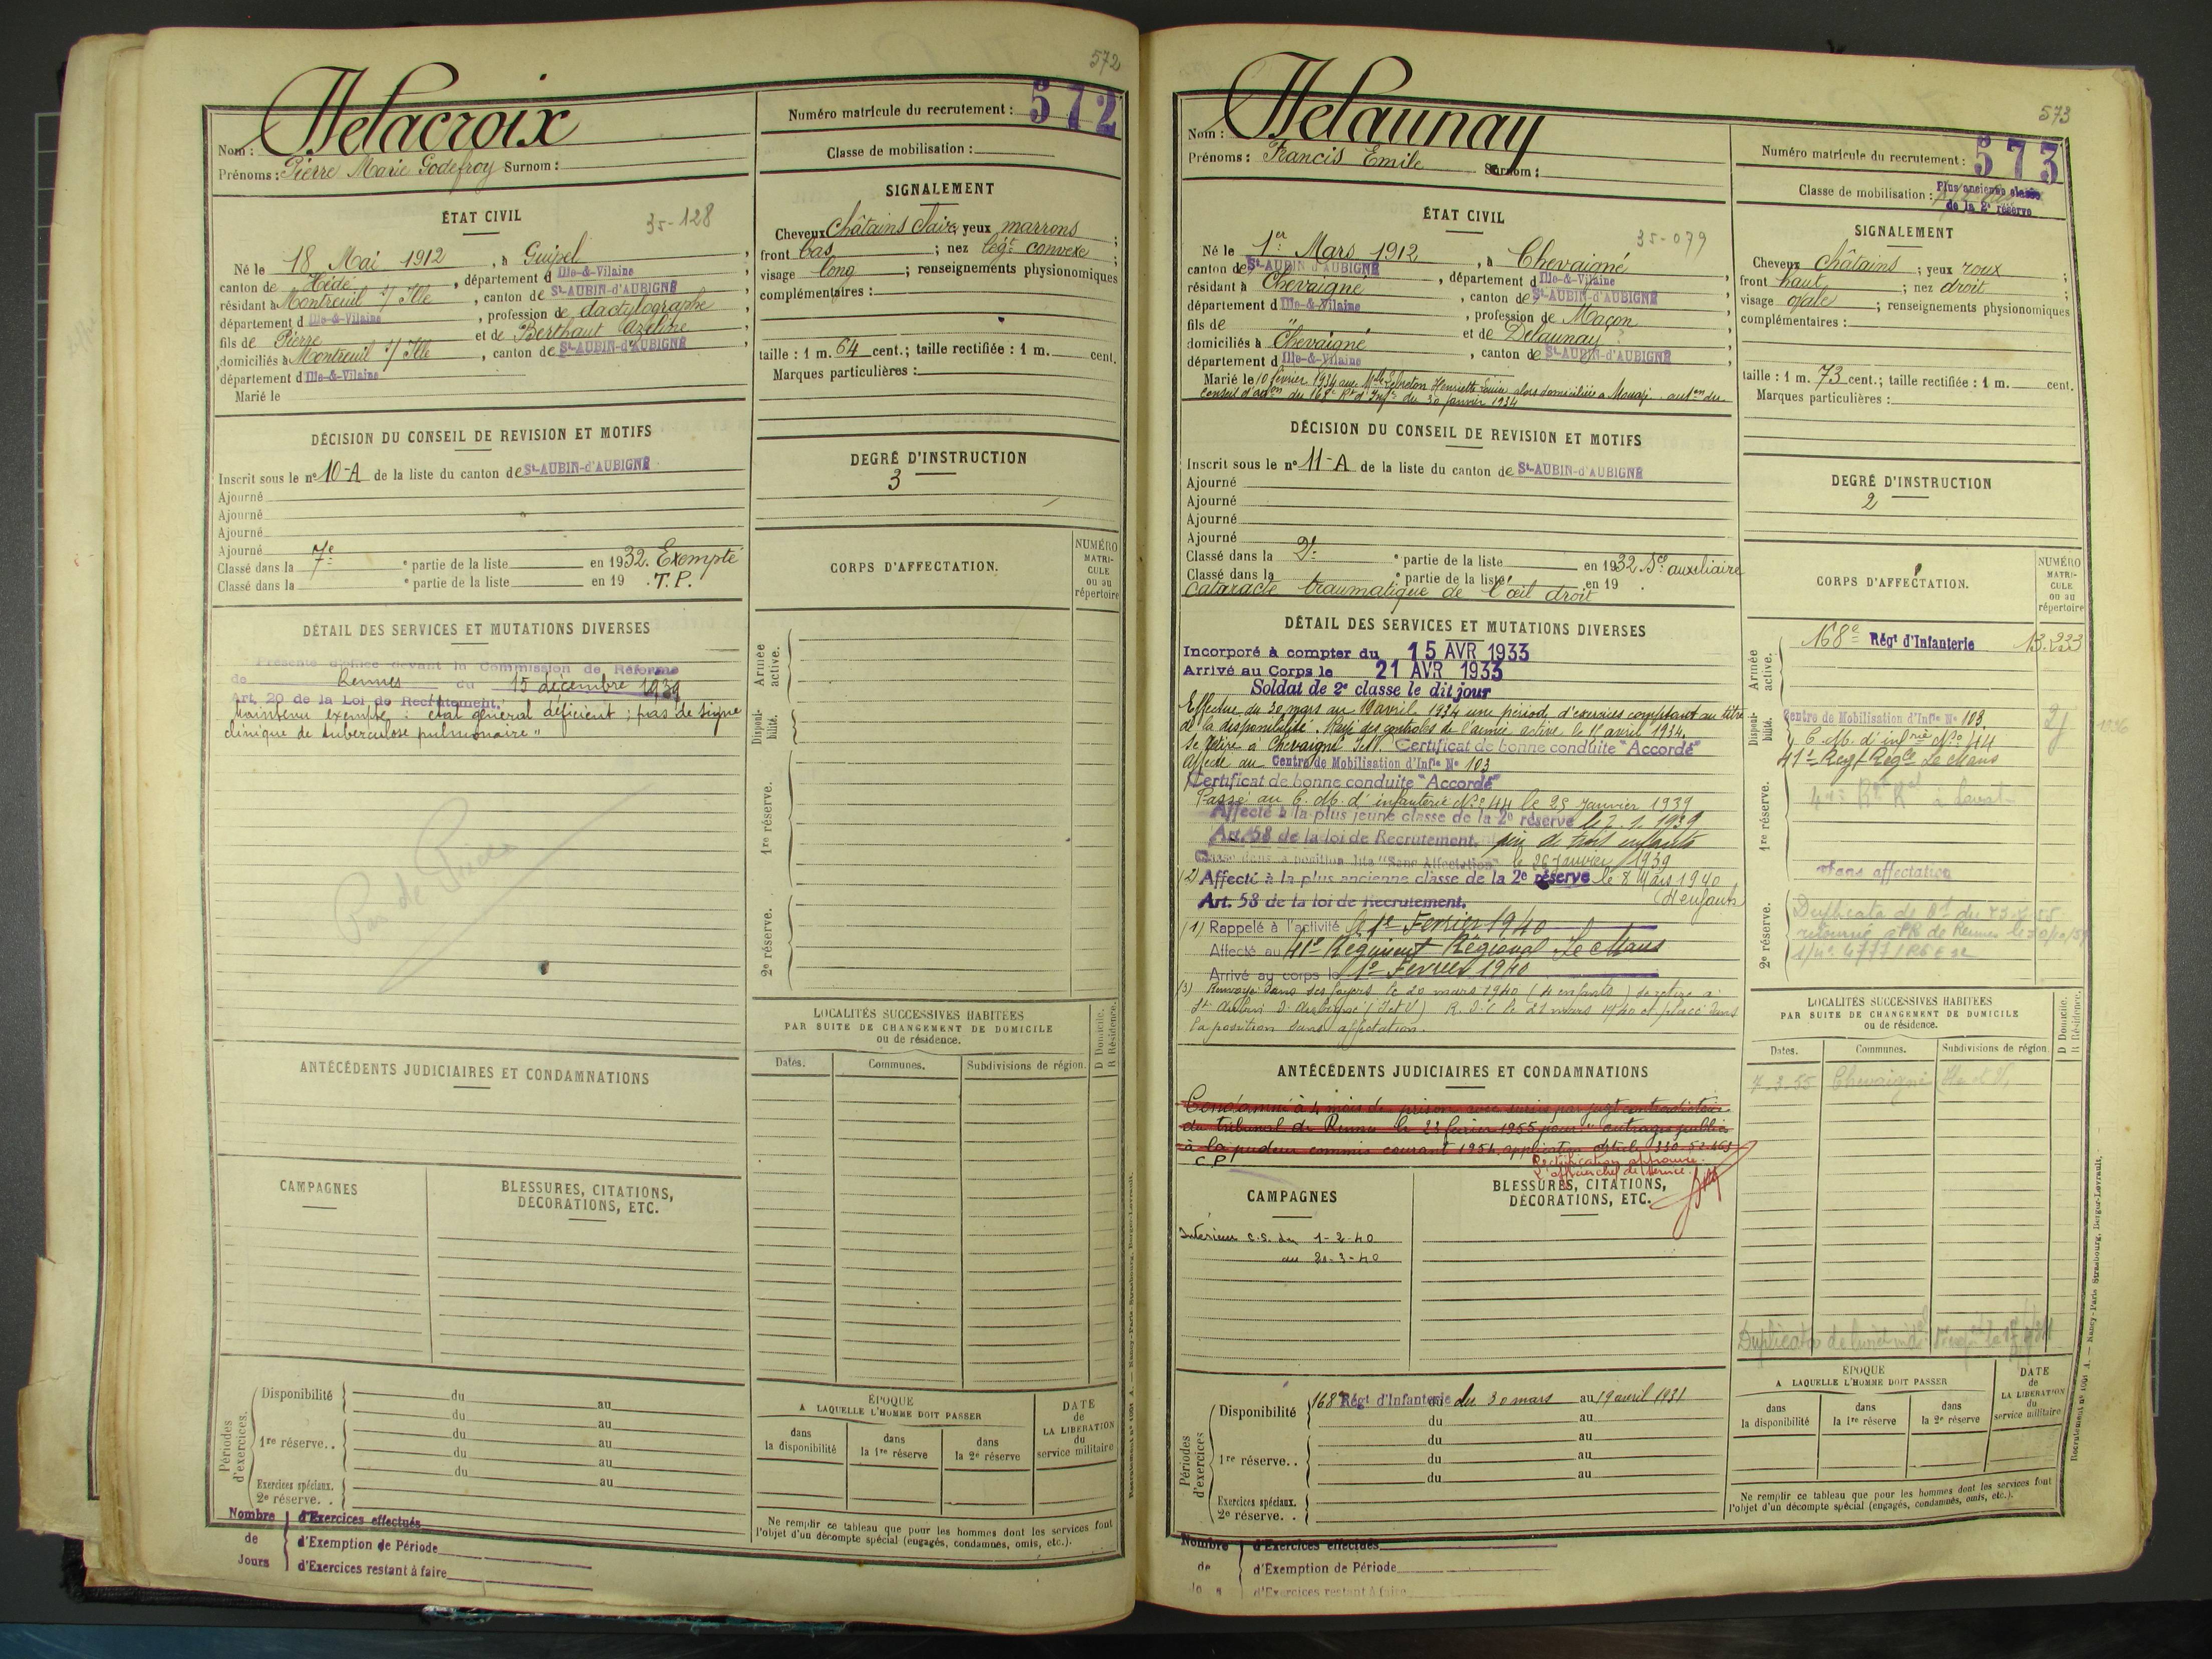 572
Delacroix
Nom :
Prénoms : Pierre Marie Godefroy Surnom :
Numéro matricule du recrutement : 572
Classe de mobilisation :
ÉTAT CIVIL
35-128
Né le 18 Mai 1912, à Guipel,
canton de Hédé, département d Ille-&-Vilaine,
résidant à Montreuil s/ Ille, canton de St-AUBIN-d'AUBIGNÉ,
département d Ille-&-Vilaine, profession de dactylographe,
fils de Pierre et de Berthaut Azeline,
domiciliés à Montreuil s/ Ille, canton de St-AUBIN-d'AUBIGNÉ,
département d Ille-&-Vilaine
Marié le
SIGNALEMENT
Cheveux châtains clairs, yeux marrons ;
front bas ; nez légt convexe ;
visage long ; renseignements physionomiques
complémentaires :
taille : 1 m. 64 cent. ; taille rectifiée : 1 m. cent.
Marques particulières :
DÉCISION DU CONSEIL DE REVISION ET MOTIFS
Inscrit sous le n° 10-A de la liste du canton de St-AUBIN-d'AUBIGNÉ
Ajourné
Ajourné
Ajourné
Ajourné
Classé dans la 7e e partie de la liste en 1932. Exempté
Classé dans la e partie de la liste en 19 . T.P.
DEGRÉ D'INSTRUCTION
3
CORPS D'AFFECTATION.
NUMÉRO
MATRI-
CULE
ou au
répertoire
DÉTAIL DES SERVICES ET MUTATIONS DIVERSES
Présenté d'office devant la Commission de Réforme
de Rennes du 15 décembre 1939
Art. 20 de la Loi de Recrutement.
Maintenu exempté : état général déficient ; pas de signe
clinique de tuberculose pulmonaire "
Pas de
Armée
active.
Disponi-
bilité.
1re réserve.
2e réserve.
LOCALITÉS SUCCESSIVES HABITÉES
PAR SUITE DE CHANGEMENT DE DOMICILE
ou de résidence.
Dates.
Communes.
Subdivisions de région.
D Domicile.
R Résidence.
ANTÉCÉDENTS JUDICIAIRES ET CONDAMNATIONS
CAMPAGNES
BLESSURES, CITATIONS,
DÉCORATIONS, ETC.
Périodes
d'exercices.
Disponibilité du au
du au
1re réserve.. du au
du au
du au
Exercices spéciaux.
2e réserve. .
ÉPOQUE
A LAQUELLE L'HOMME DOIT PASSER
dans
la disponibilité
dans
la 1re réserve
dans
la 2e réserve
DATE
de
LA LIBÉRATION
du
service militaire
Ne remplir ce tableau que pour les hommes dont les services font
l'objet d'un décompte spécial (engagés, condamnés, omis, etc.).
Nombre d'Exercices effectués
de d'Exemption de Période
Jours d'Exercices restant à faire
573
Delaunay
Nom :
Prénoms : Francis Emile Surnom :
Numéro matricule du recrutement : 573
Classe de mobilisation : Plus ancienne classe
de la 2e réserve
ÉTAT CIVIL
35-079
Né le 1er Mars 1912, à Chevaigné,
canton de St-AUBIN d'AUBIGNÉ, département d Ille-&-Vilaine,
résidant à Chevaigné, canton de St-AUBIN-d'AUBIGNÉ,
département d Ille-&-Vilaine, profession de Maçon,
fils de " et de Delaunay,
domiciliés à Chevaigné, canton de St-AUBIN-d'AUBIGNÉ,
département d Ille-&-Vilaine
Marié le 10 février 1934 avec Mlle Lebreton Henriette Louise alors domiciliée à Mouazé. auton du
Conseil d'adon du 168e Rt d'Infie du 30 janvier 1934
SIGNALEMENT
Cheveux châtains ; yeux roux ;
front haut ; nez droit ;
visage ovale ; renseignements physionomiques
complémentaires :
taille : 1 m. 73 cent. ; taille rectifiée : 1 m. cent.
Marques particulières :
DÉCISION DU CONSEIL DE REVISION ET MOTIFS
Inscrit sous le n° 11-A de la liste du canton de St-AUBIN-d'AUBIGNÉ
Ajourné
Ajourné
Ajourné
Ajourné
Classé dans la 2e e partie de la liste en 1932 Sce auxiliaire
Classé dans la e partie de la liste en 19 .
Cataracte traumatique de l'œil droit
DEGRÉ D'INSTRUCTION
2
CORPS D'AFFECTATION.
NUMÉRO
MATRI-
CULE
ou au
répertoire
DÉTAIL DES SERVICES ET MUTATIONS DIVERSES
Incorporé à compter du 15 AVR 1933
Arrivé au Corps le 21 AVR 1933
Soldat de 2e classe le dit jour
Effectue du 30 mars au 19 avril 1934 une période d'exercices comptant au titre
de la disponibilité. Rayé des contrôles de l'armée active le 1er avril 1934.
Se retire à Chevaigné I&V. Certificat de bonne conduite "Accordé"
Affecté au Centre de Mobilisation d'Infie N° 103
Certificat de bonne conduite "Accordé"
Passé au C. M. d'infanterie N° 44 le 25 Janvier 1939
Affecté à la plus jeune classe de la 2e réserve le 2.1.1939
Art. 58 de la loi de Recrutement. père de trois enfants
Classé dans la position dite "Sans Affectation" le 26 Janvier 1939
(2) Affecté à la plus ancienne classe de la 2e réserve le 8 Mars 1940
Art. 58 de la loi de Recrutement. (4 enfants)
(1) Rappelé à l'activité le 1er Février 1940
Affecté au 41e Régiment Régional Le Mans
Arrivé au corps le 1er Février 1940
(3) Renvoyé dans ses foyers le 20 mars 1940 (4 enfants) se retire à
St Aubin d'Aubigné (I et V) R.D.C le 21 mars 1940 et placé dans
la position sans affectation.
Armée
active.
168e Régt d'Infanterie 13.223
Disponi-
bilité.
Centre de Mobilisation d'Infie N° 103
C. M. d'infrie N° 44
41e Regt Regal Le Mans
1re réserve.
Sans affectation
2e réserve.
LOCALITÉS SUCCESSIVES HABITÉES
PAR SUITE DE CHANGEMENT DE DOMICILE
ou de résidence.
Dates.
Communes.
Subdivisions de région.
D Domicile.
R Résidence.
7-3-55 Chevaigné
ANTÉCÉDENTS JUDICIAIRES ET CONDAMNATIONS
Condamné à 4 mois de prison avec sursis par jugt contradictoire
du tribunal de Rennes le 23 février 1955 pour outrages publics
à la pudeur commis courant 1954, application article 330-52-463
C.P.
Rectification approuvée.
CAMPAGNES
BLESSURES, CITATIONS,
DÉCORATIONS, ETC.
Intérieur C.S. du 1-2-40
au 20-3-40
Duplicata de livret
Périodes
d'exercices
Disponibilité 168e Régt d'Infanterie du 30 mars au 19 avril 1931
du au
1re réserve.. du au
du au
du au
Exercices spéciaux.
2e réserve. .
ÉPOQUE
A LAQUELLE L'HOMME DOIT PASSER
dans
la disponibilité
dans
la 1re réserve
dans
la 2e réserve
DATE
de
LA LIBÉRATION
du
service militaire
Ne remplir ce tableau que pour les hommes dont les services font
l'objet d'un décompte spécial (engagés, condamnés, omis, etc.).
Nombre d'Exercices effectués
de d'Exemption de Période
d'Exercices restant à faire